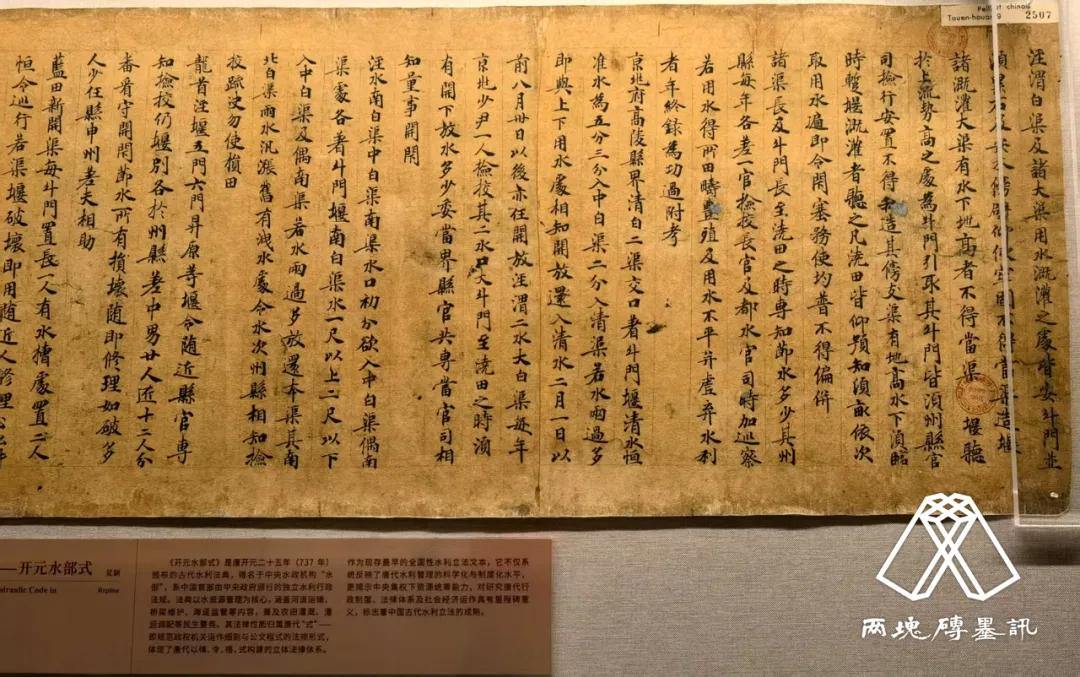 涇渭白渠及諸大渠用水溉灌之處皆安斗門並
須累石及安木傍壁仰使牢固不得當渠造堰
諸溉灌大渠有水下地高者不得當渠堰聽
於上流勢高之處為斗門引取其斗門皆須州縣官
司檢行安置不得私造其傍支渠有地高水下須臨
時蹔堰溉灌者聽之凡澆田皆仰預知頃畝依次
取用水遍即令閉塞務使均普不得偏併
諸渠長及斗門長至澆田之時專知節水多少其州
縣每年各差一官檢校長官及都水官司時加巡察
若用水得所田疇豐殖及用水不平并虛弃水利
者年終錄為功過附考
京兆府高陵縣界清白二渠交口著斗門堰清水恒
准水為五分三分入中白渠二分入清渠若水雨過多
即與上下用水處相知開放還入清水二月一日以
前八月卅日以後亦任開放涇渭二水大白渠每年
京兆少尹一人檢校其二水口大斗門至澆田之時須
有開下放水多少委當界縣官共專當官司相
知量事開閉
涇水南白渠中白渠南渠水口初分欲入中白渠偶南
渠處各著斗門堰南白渠水一尺以上二尺以下
入中白渠及偶南渠若水雨過多放還本渠其南
北白渠雨水汎漲舊有洩水處令水次州縣相知檢
校疏決勿使損田
龍首涇堰五門六門昇原等堰令隨近縣官專
知檢校仍堰別各於州縣差中男廿人匠十二人分
番看守開閉節水所有損壞隨即修理如破多
人少任縣申州差夫相助
藍田新開渠每斗門置長一人有水槽處置二人
恒令巡行若渠堰破壞即用隨近人修理公私
Pelliot chinois
Touen-houang 2507
——开元水部式 复制
draulic Code in Replica
《开元水部式》是唐开元二十五年（737 年）
颁布的古代水利法典，得名于中央水政机构“水
部”，系中国首部由中央政府颁行的独立水利行政
法规。法典以水资源管理为核心，涵盖河道浴堰、
桥梁维护、海运监管等内容，兼及农田灌溉、漕
运调配等民生要务。其法律性质归属唐代“式”——
即规范政权机关运作细则与公文程式的法定形式，
体现了唐代以律、令、格、式构建的立体法律体系。
作为现存最早的全国性水利立法文本，它不仅系
统反映了唐代水利管理的科学化与制度化水平，
更揭示中央集权下资源统筹能力，对研究唐代行
政制度、法律体系及社会经济运作具有里程碑意
义，标志着中国古代水利立法的成熟。
两塊磚墨訊